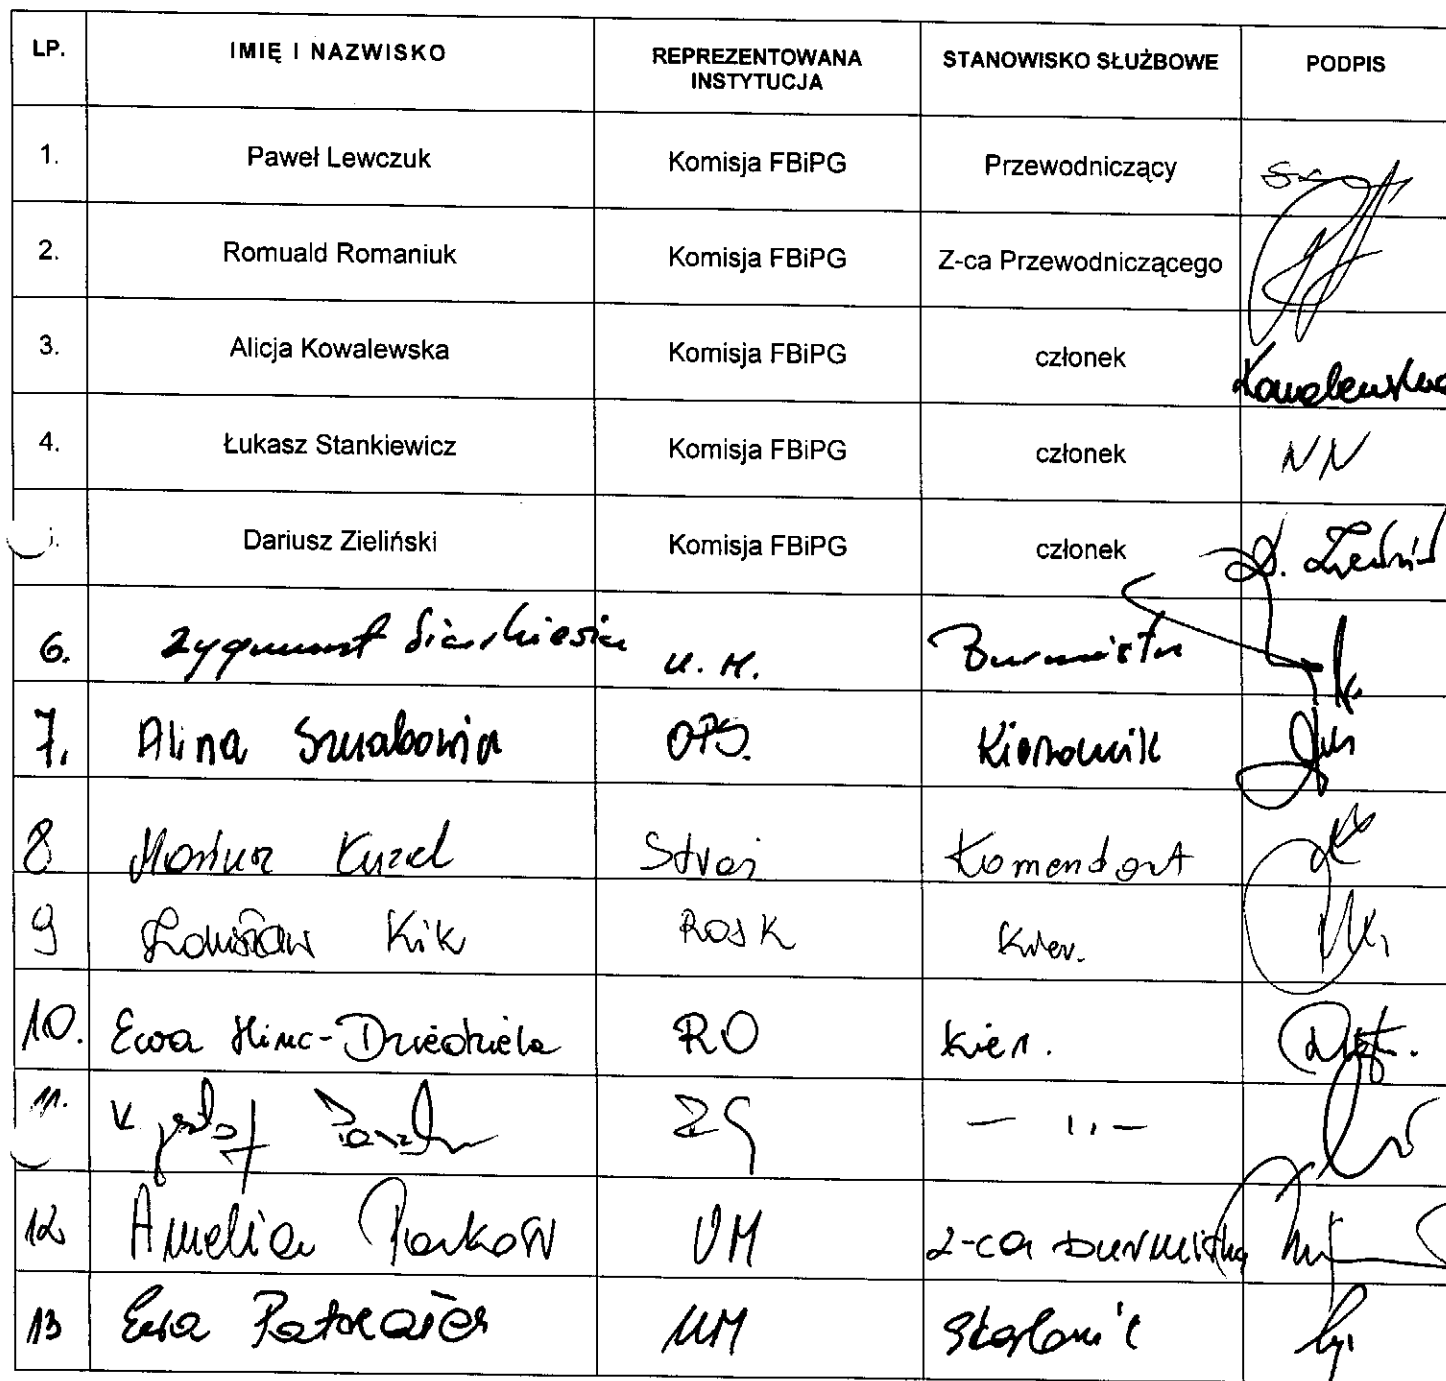 LP. IMIĘ I NAZWISKO REPREZENTOWANA INSTYTUCJA STANOWISKO SŁUŻBOWE PODPIS
1. Paweł Lewczuk Komisja FBiPG Przewodniczący
2. Romuald Romaniuk Komisja FBiPG Z-ca Przewodniczącego
3. Alicja Kowalewska Komisja FBiPG członek Kowalewska
4. Łukasz Stankiewicz Komisja FBiPG członek NN
Dariusz Zieliński Komisja FBiPG członek D.
6. Zygmunt U.M. Burmistrz
7. Alina OPS. Kierownik
8 Mariusz Kuzel Straż Komendant
9 Kik kier.
10. Ewa Hinc-Dziedziela RO kier.
11. Krzysztof — 11 —
12 Amelia UM z-ca burmistrza
13 Ewa UM Skarbnik